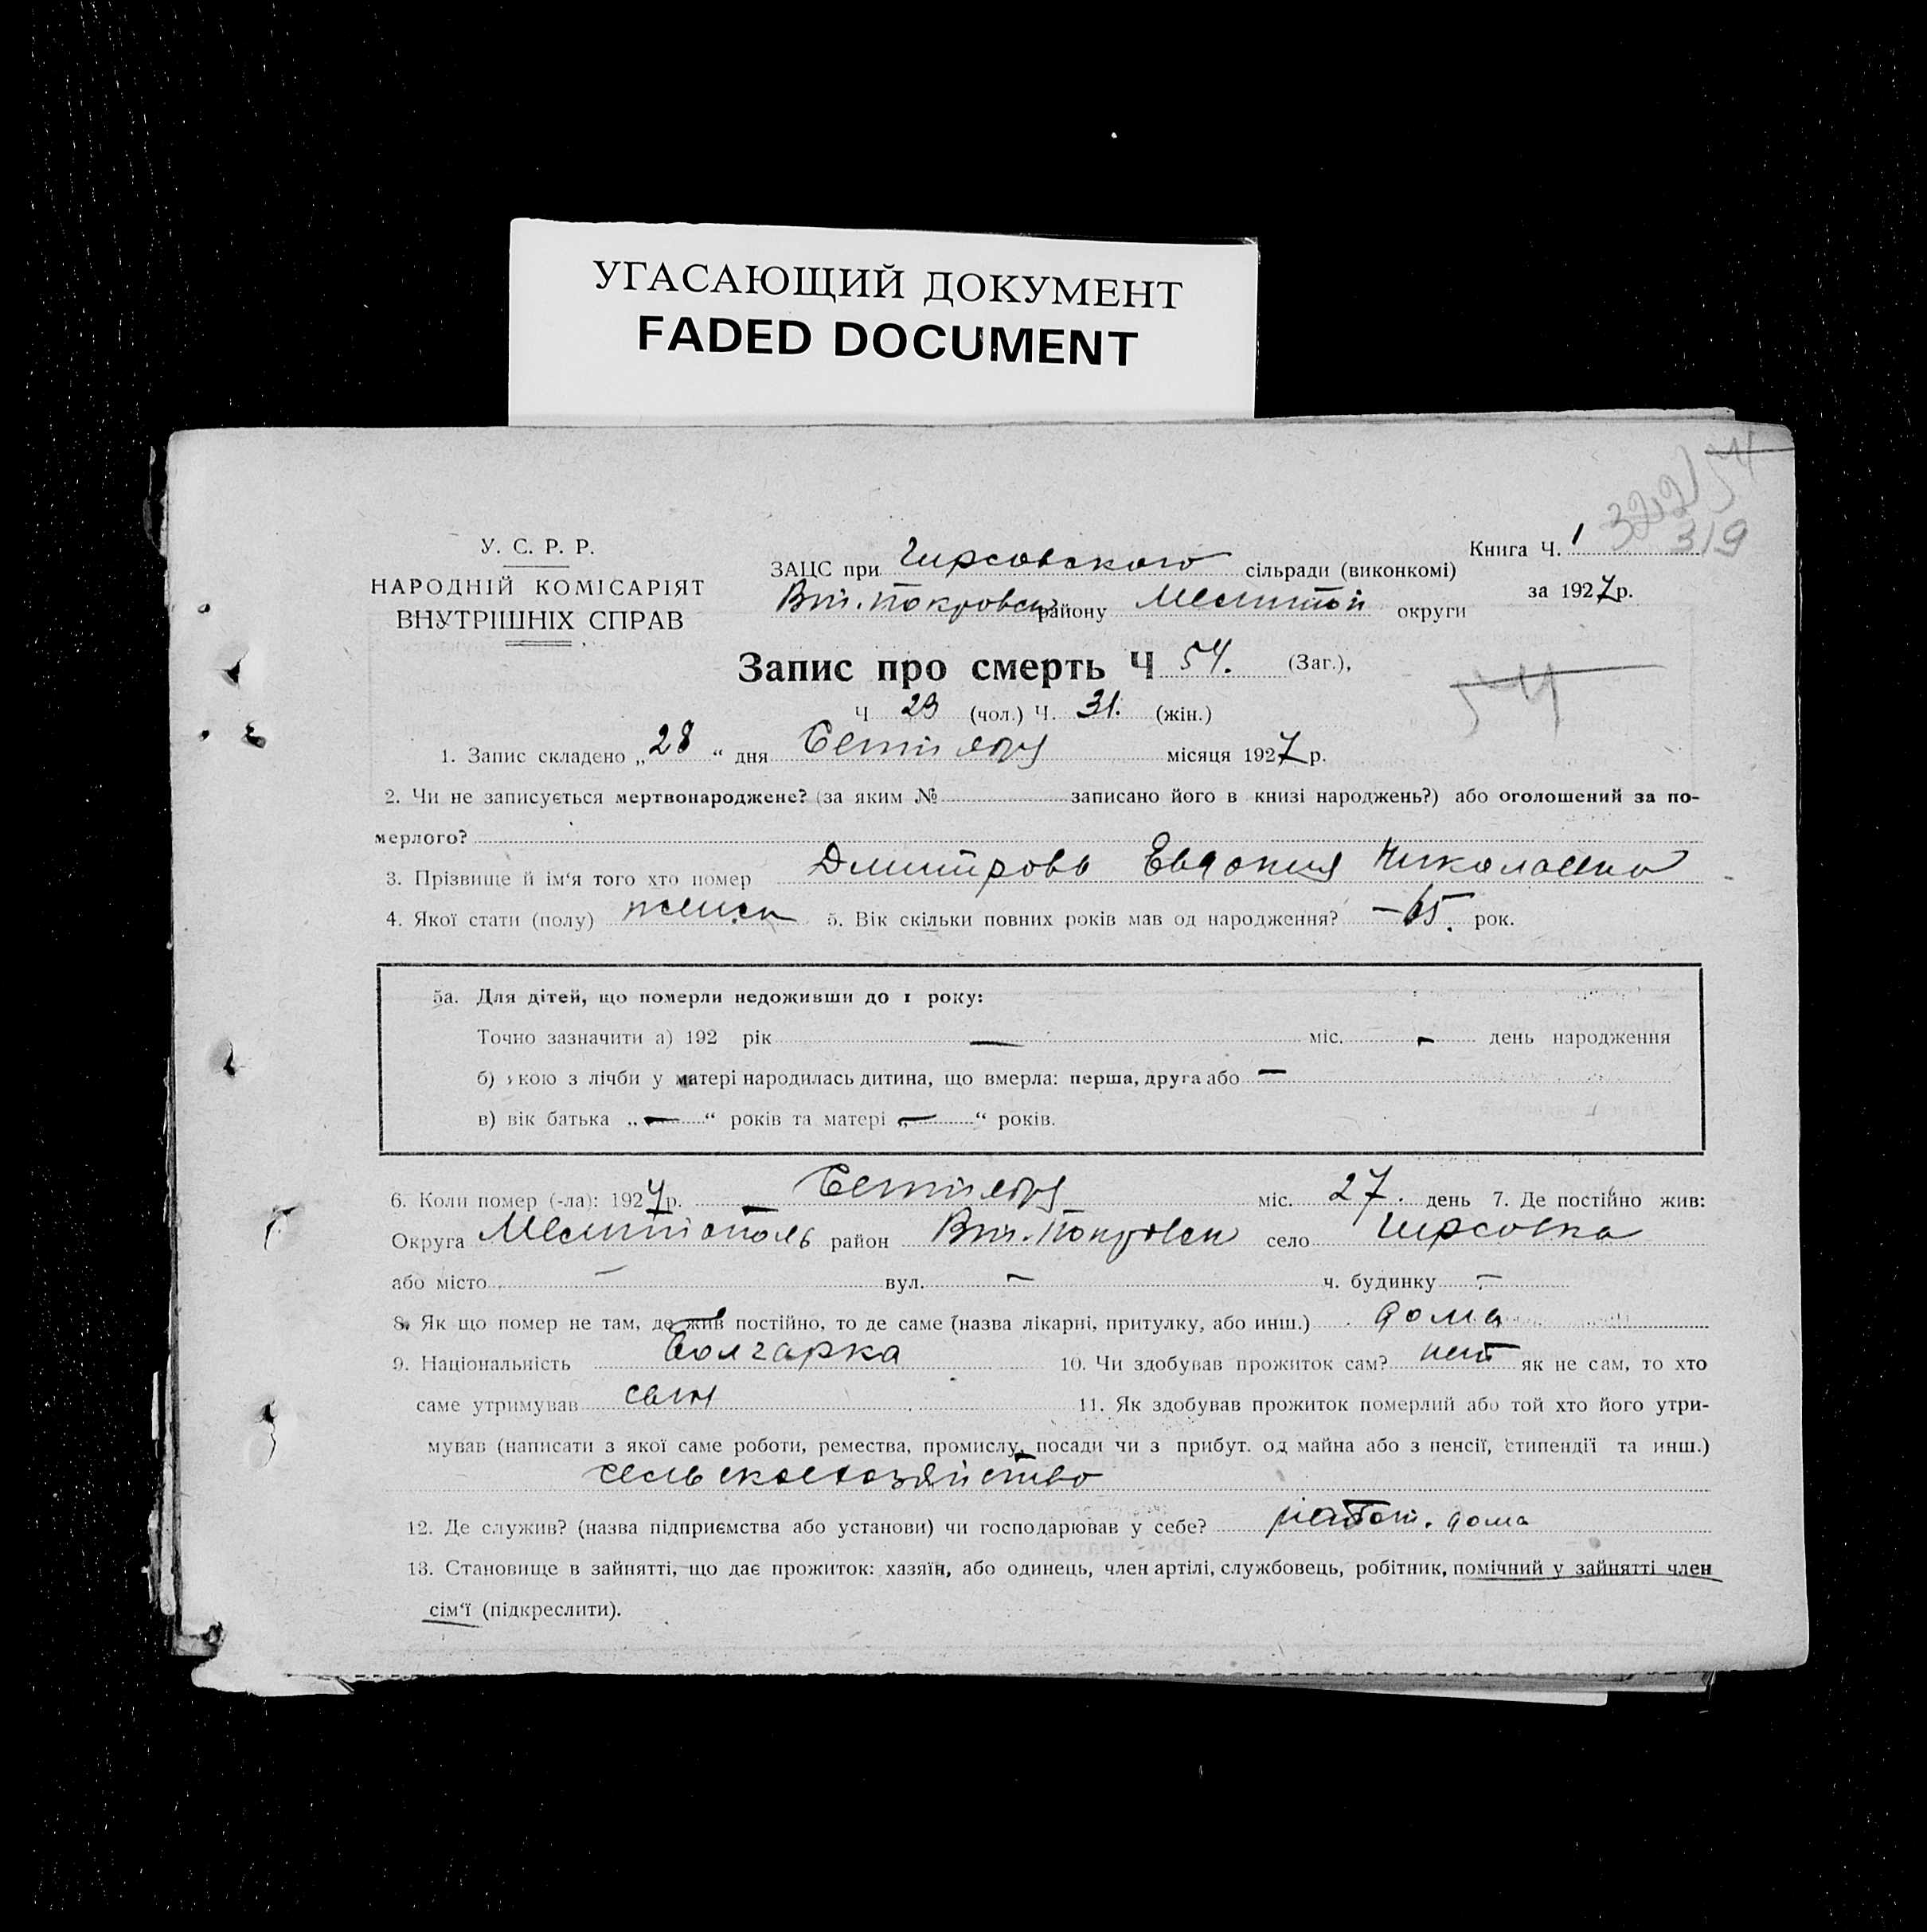 УГАСАЮЩИЙ ДОКУМЕНТ
FADED DOCUMENT
322 54
319
У. С. Р. Р.
НАРОДНІЙ КОМІСАРІЯТ
ВНУТРІШНІХ СПРАВ
ЗАЦС при Гирсовского сільради (виконкомі)
Вт. Покровск району Мелитоп округи
Книга Ч. 1
за 1927 р.
Запис про смерть Ч 54. (Заг.),
54
Ч 23 (чол.) Ч. 31. (жін.)
1. Запис складено „ 28 “ дня Сентября місяця 1927 р.
2. Чи не записується мертвонароджене? (за яким № записано його в книзі народжень?) або оголошений за по-
мерлого?
3. Прізвище й ім‘я того хто помер Дмитрова Евдокия Николаевна
4. Якої стати (полу) женск 5. Вік скільки повних років мав од народження? — 65. рок.
5а. Для дітей, що померли недоживши до 1 року:
Точно зазначити а) 192 рік — міс. - день народження
б) кою з лічби у матері народилась дитина, що вмерла: перша, друга або —
в) вік батька „ — “ років та матері „ — “ років.
6. Коли помер (-ла): 1927 р. Сентября міс. 27. день 7. Де постійно жив:
Округа Мелитополь район Вт. Покровск село Гирсовка
або місто — вул. — ч. будинку —
8. Як що помер не там, де жив постійно, то де саме (назва лікарні, притулку, або инш.) дома
9. Національність болгарка 10. Чи здобував прожиток сам? нет як не сам, то хто
саме утримував сын 11. Як здобував прожиток померлий або той хто його утри-
мував (написати з якої саме роботи, ремества, промислу, посади чи з прибут. од майна або з пенсії, стипендії та инш.)
сельское хозяйство
12. Де служив? (назва підприємства або установи) чи господарював у себе? работ. дома
13. Становище в зайнятті, що дає прожиток: хазяїн, або одинець, член артілі, службовець, робітник, помічний у зайнятті член
сім‘ї (підкреслити).